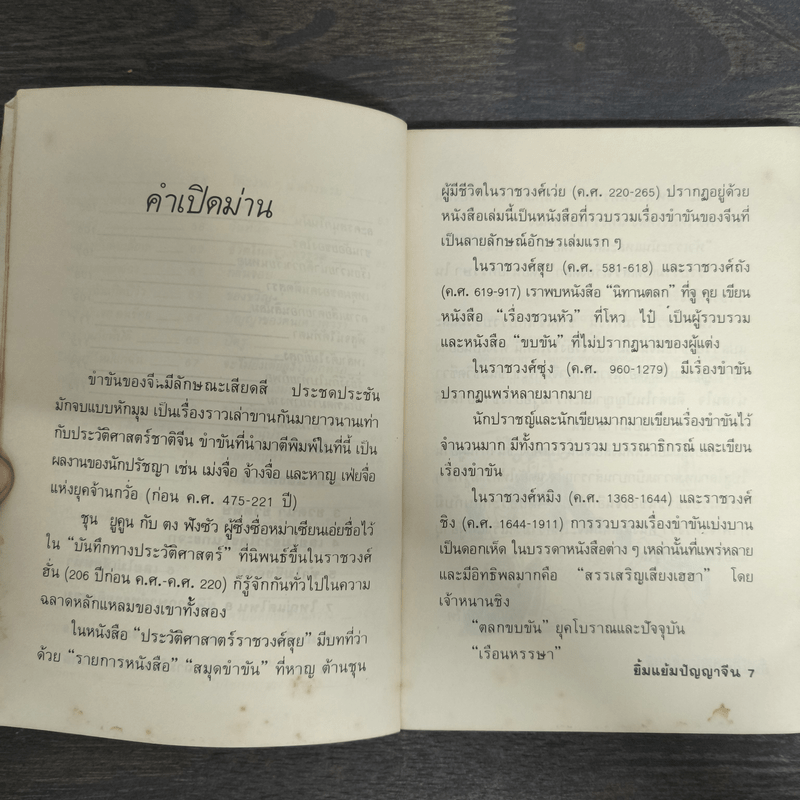 คำเปิดม่าน
ขำขันของจีนมีลักษณะเสียดสี ประชดประชัน
มักจบแบบหักมุม เป็นเรื่องราวเล่าขานกันมายาวนานเท่า
กับประวัติศาสตร์ชาติจีน ขำขันที่นำมาตีพิมพ์ในที่นี้ เป็น
ผลงานของนักปรัชญา เช่น เม่งจื่อ จ้างจื่อ และหาญ เฟ่ยจื่อ
แห่งยุคจ้านกวั๋อ (ก่อน ค.ศ. 475-221 ปี)
ชุน ยูคูน กับ ตง ฟังซัว ผู้ซึ่งซื่อหม่าเซียนเอ่ยชื่อไว้
ใน “บันทึกทางประวัติศาสตร์” ที่นิพนธ์ขึ้นในราชวงศ์
ฮั่น (206 ปีก่อน ค.ศ.-ค.ศ. 220) ก็รู้จักกันทั่วไปในความ
ฉลาดหลักแหลมของเขาทั้งสอง
ในหนังสือ “ประวัติศาสาตร์ราชวงศ์สุย” มีบทที่ว่า
ด้วย “รายการหนังสือ” “สมุดขำขัน” ที่หาญ ต้านชุน
ผู้มีชีวิตในราชวงศ์เว่ย (ค.ศ. 220-265) ปรากฏอยู่ด้วย
หนังสือเล่มนี้เป็นหนังสือที่รวบรวมเรื่องขำขันของจีนที่
เป็นลายลักษณ์อักษรเล่มแรก ๆ
ในราชวงศ์สุย (ค.ศ. 581-618) และราชวงศ์ถัง
(ค.ศ. 619-917) เราพบหนังสือ “นิทานตลก” ที่จู คุย เขียน
หนังสือ “เรื่องชวนหัว” ที่โหว ไป๋ เป็นผู้รวบรวม
และหนังสือ “ขบขัน” ที่ไม่ปรากฏนามของผู้แต่ง
ในราชวงศ์ซุ่ง (ค.ศ. 960-1279) มีเรื่องขำขัน
ปรากฏแพร่หลายมากมาย
นักปราชญ์และนักเขียนมากมายเขียนเรื่องขำขันไว้
จำนวนมาก มีทั้งการรวบรวม บรรณาธิกรณ์ และเขียน
เรื่องขำขัน
ในราชวงศ์หมิง (ค.ศ. 1368-1644) และราชวงศ์
ชิง (ค.ศ. 1644-1911) การรวบรวมเรื่องขำขันเบ่งบาน
เป็นดอกเห็ด ในบรรดาหนังสือต่าง ๆ เหล่านั้นที่แพร่หลาย
และมีอิทธิพลมากคือ “สรรเสริญเสียงเฮฮา” โดย
เจ้าหนานชิง
“ตลกขบขัน” ยุคโบราณและปัจจุบัน
“เรือนหรรษา”
ยิ้มแย้มปัญญาจีน 7